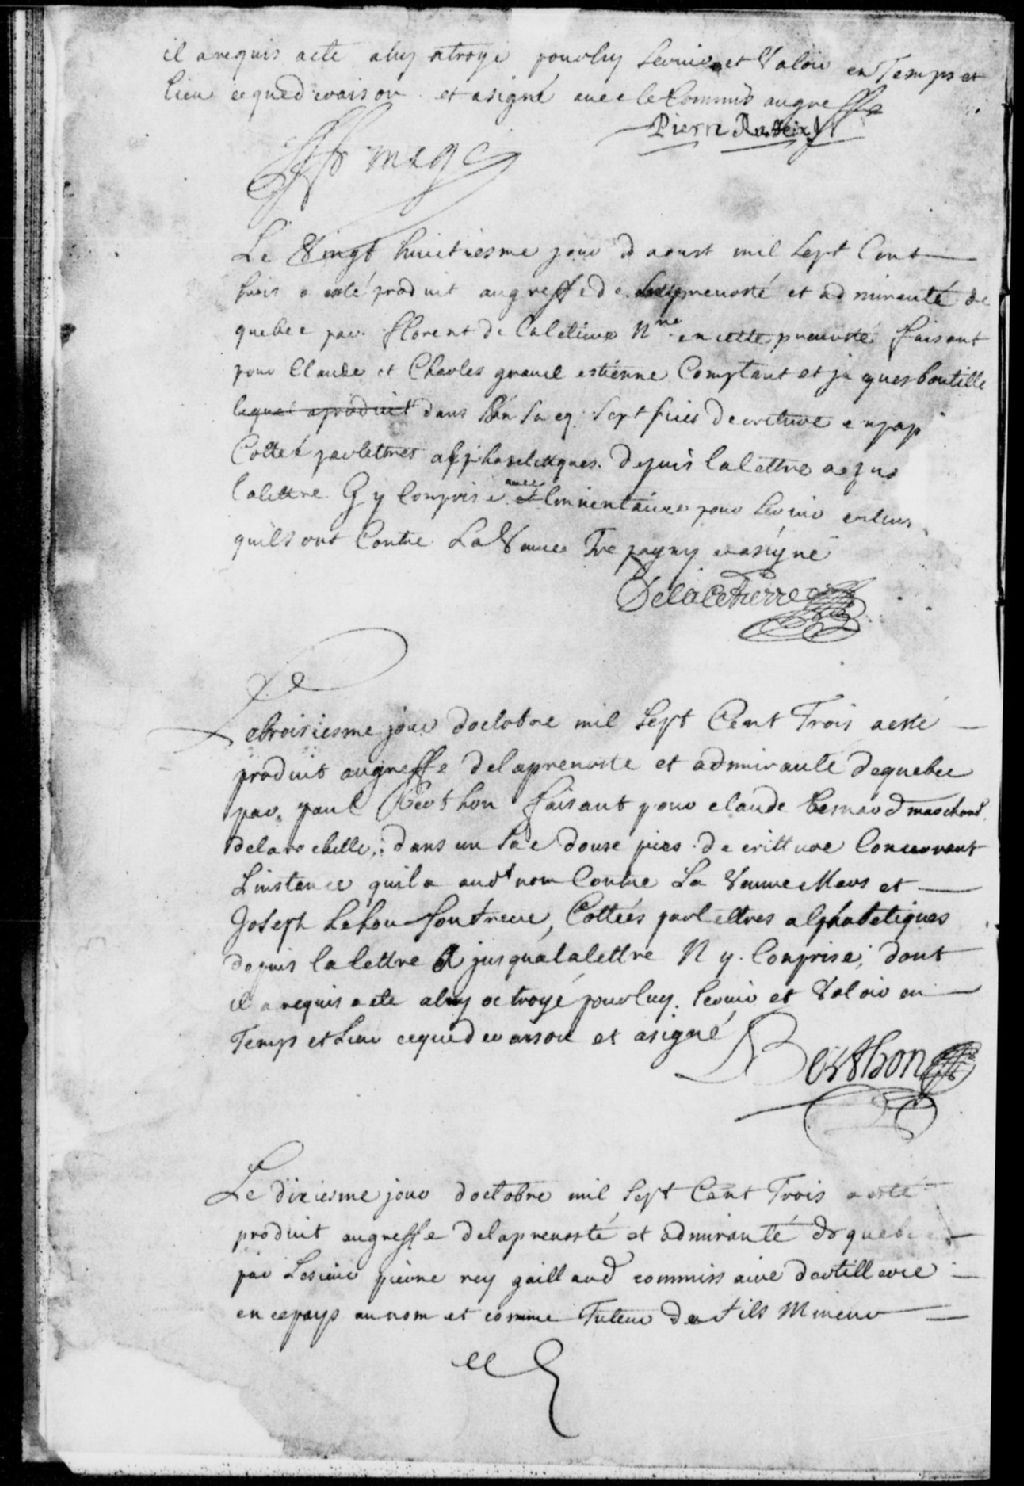 il a requis acte a luy octroyé pour luy servir et valoir en Temps et
lieu ce que de raison et a signé avec le Commis au greffe
Pierre
Le Vingt huictiesme jour d'aoust mil sept Cent
trois a esté produit au greffe de la prevosté et admirauté de
quebec par florent de laCetiere Nre en cette prevosté faisant
pour Claude et Charles gravel estienne Comptant et jaques boutille
lequel a produit dans Son Sacq Sept pieces decriture en pap
Cottéz par lettres alphabetiques depuis la lettre a jus
la lettre G y Compris avec Linventaire pour servir
quils ont Contre La Veuve Trepagny et a signé
DelaCetierre
Le troisiesme jour doctobre mil Sept Cent Trois a esté
produit au greffe de la prevoste et admirauté de quebec
par paul Berthon faisant pour claude bernard marchand
de la rochelle dans un Sac douse pieces de critture Concernant
Linstance quil a aud nom Contre La Veuve Mars et
Joseph Lehou Son Freve, Cottées par lettres alphabetiques
depuis la lettre A jusqua la lettre N y Comprise, dont
il a requis acte a luy octroyé pour luy servir et Valoir en
Temps et Lieu ce que de raison et a signé
Berthon
Le dixiesme jour doctobre mil Sept Cent Trois a esté
produit au greffe de la prevosté et admirauté de quebec
par Lesieur pierre rey gaillard commissaire dartillerie
en ce pays au nom et comme Tuteur du fils Mineur